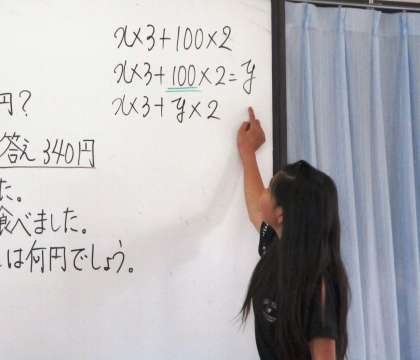 x×3+100×2
x×3+100×2=y
x×3+y×2
円?
答え 340円
た。
食べました。
は何円でしょう。